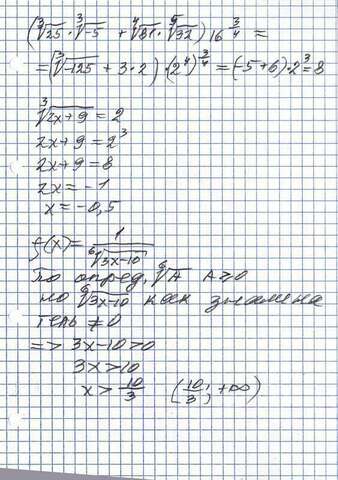 (∛25 · ∛-5 + ∜81 · ⁵√32) 16^(3/4) =
= (∛-125 + 3·2) · (2⁴)^(3/4) = (-5+6)·2³ = 8
∛2x+9 = 2
2x+9 = 2³
2x+9 = 8
2x = -1
x = -0,5
f(x) = 1/⁶√3x-10
по опред. ⁶√A A≥0
но ⁶√3x-10 как знамена
тель ≠0
=> 3x-10>0
3x>10
x > 10/3 (10/3; +∞)